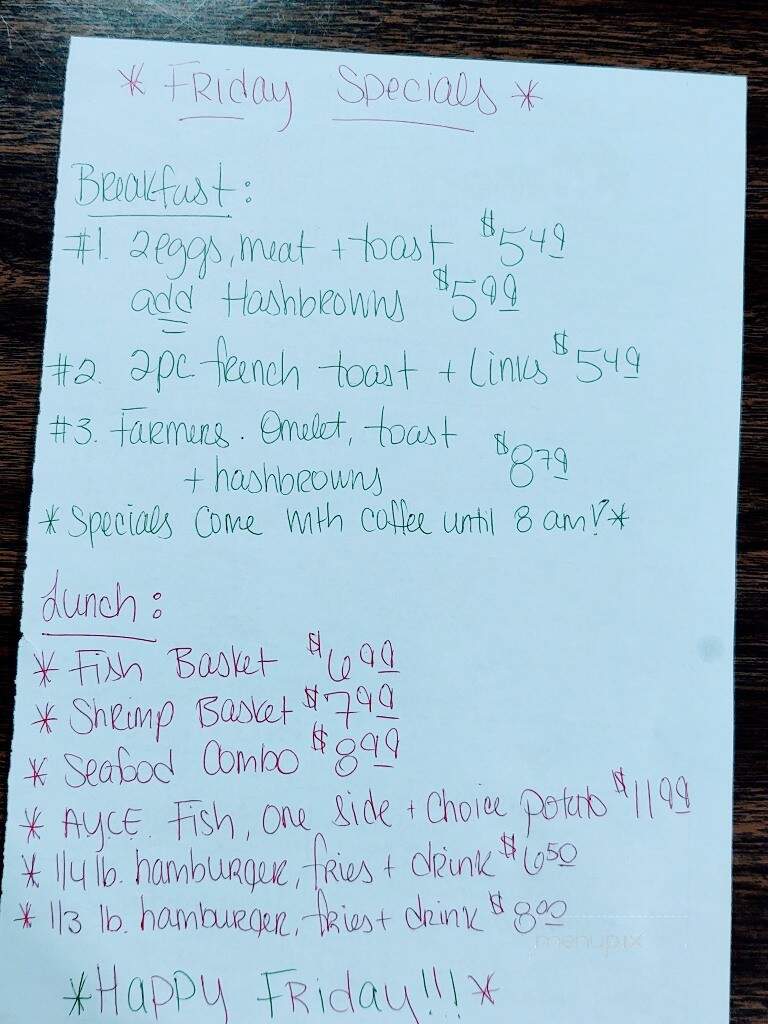 * Friday Specials *
Breakfast:
#1. 2 eggs, meat + toast $5 49
add Hashbrowns $5 99
#2. 2pc french toast + Links $5 49
#3. Farmers. Omelet, toast
+ hashbrowns $8 79
* Specials Come with coffee until 8 am! *
Lunch:
* Fish Basket $6 99
* Shrimp Basket $7 99
* Seafood Combo $8 99
* AYCE. Fish, one side + choice potato $11 99
* 1/4 lb. hamburger, fries + drink $6 50
* 1/3 lb. hamburger, fries + drink $8 00
menupix
*Happy Friday!!! *